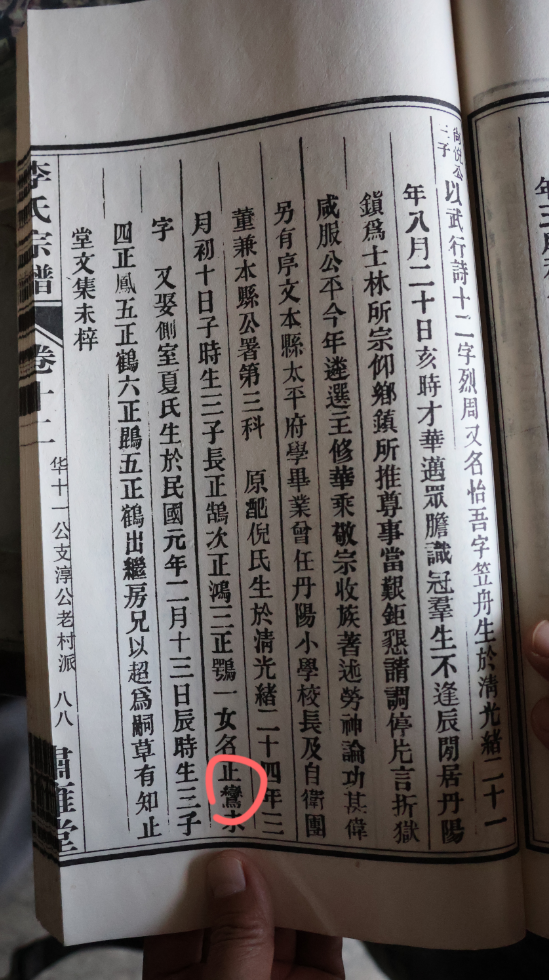 尚悅公三子
以武行詩十二字烈周又名怡吾字笠舟生於清光緒二十一
年八月二十日亥時才華邁眾膽識冠羣生不逢辰閒居丹陽
鎮爲士林所宗仰鄉鎮所推尊事當艱鉅懇請調停片言折獄
咸服公平今年遴選王修華乘敬宗收族著述勞神論功甚偉
另有序文本縣太平府學畢業曾任丹陽小學校長及自衛團
董兼本縣公署第三科 原配倪氏生於清光緒二十四年三
月初十日子時生三子長正鵠次正鴻三正鶚一女名正鸞未
字 又娶側室夏氏生於民國元年二月十三日辰時生三子
四正鳳五正鶴六正鵾五正鶴出繼房兄以超爲嗣草有知止
堂文集未梓
李氏宗譜 卷十二 华十一公支淳公老村派 八八 肅雝堂